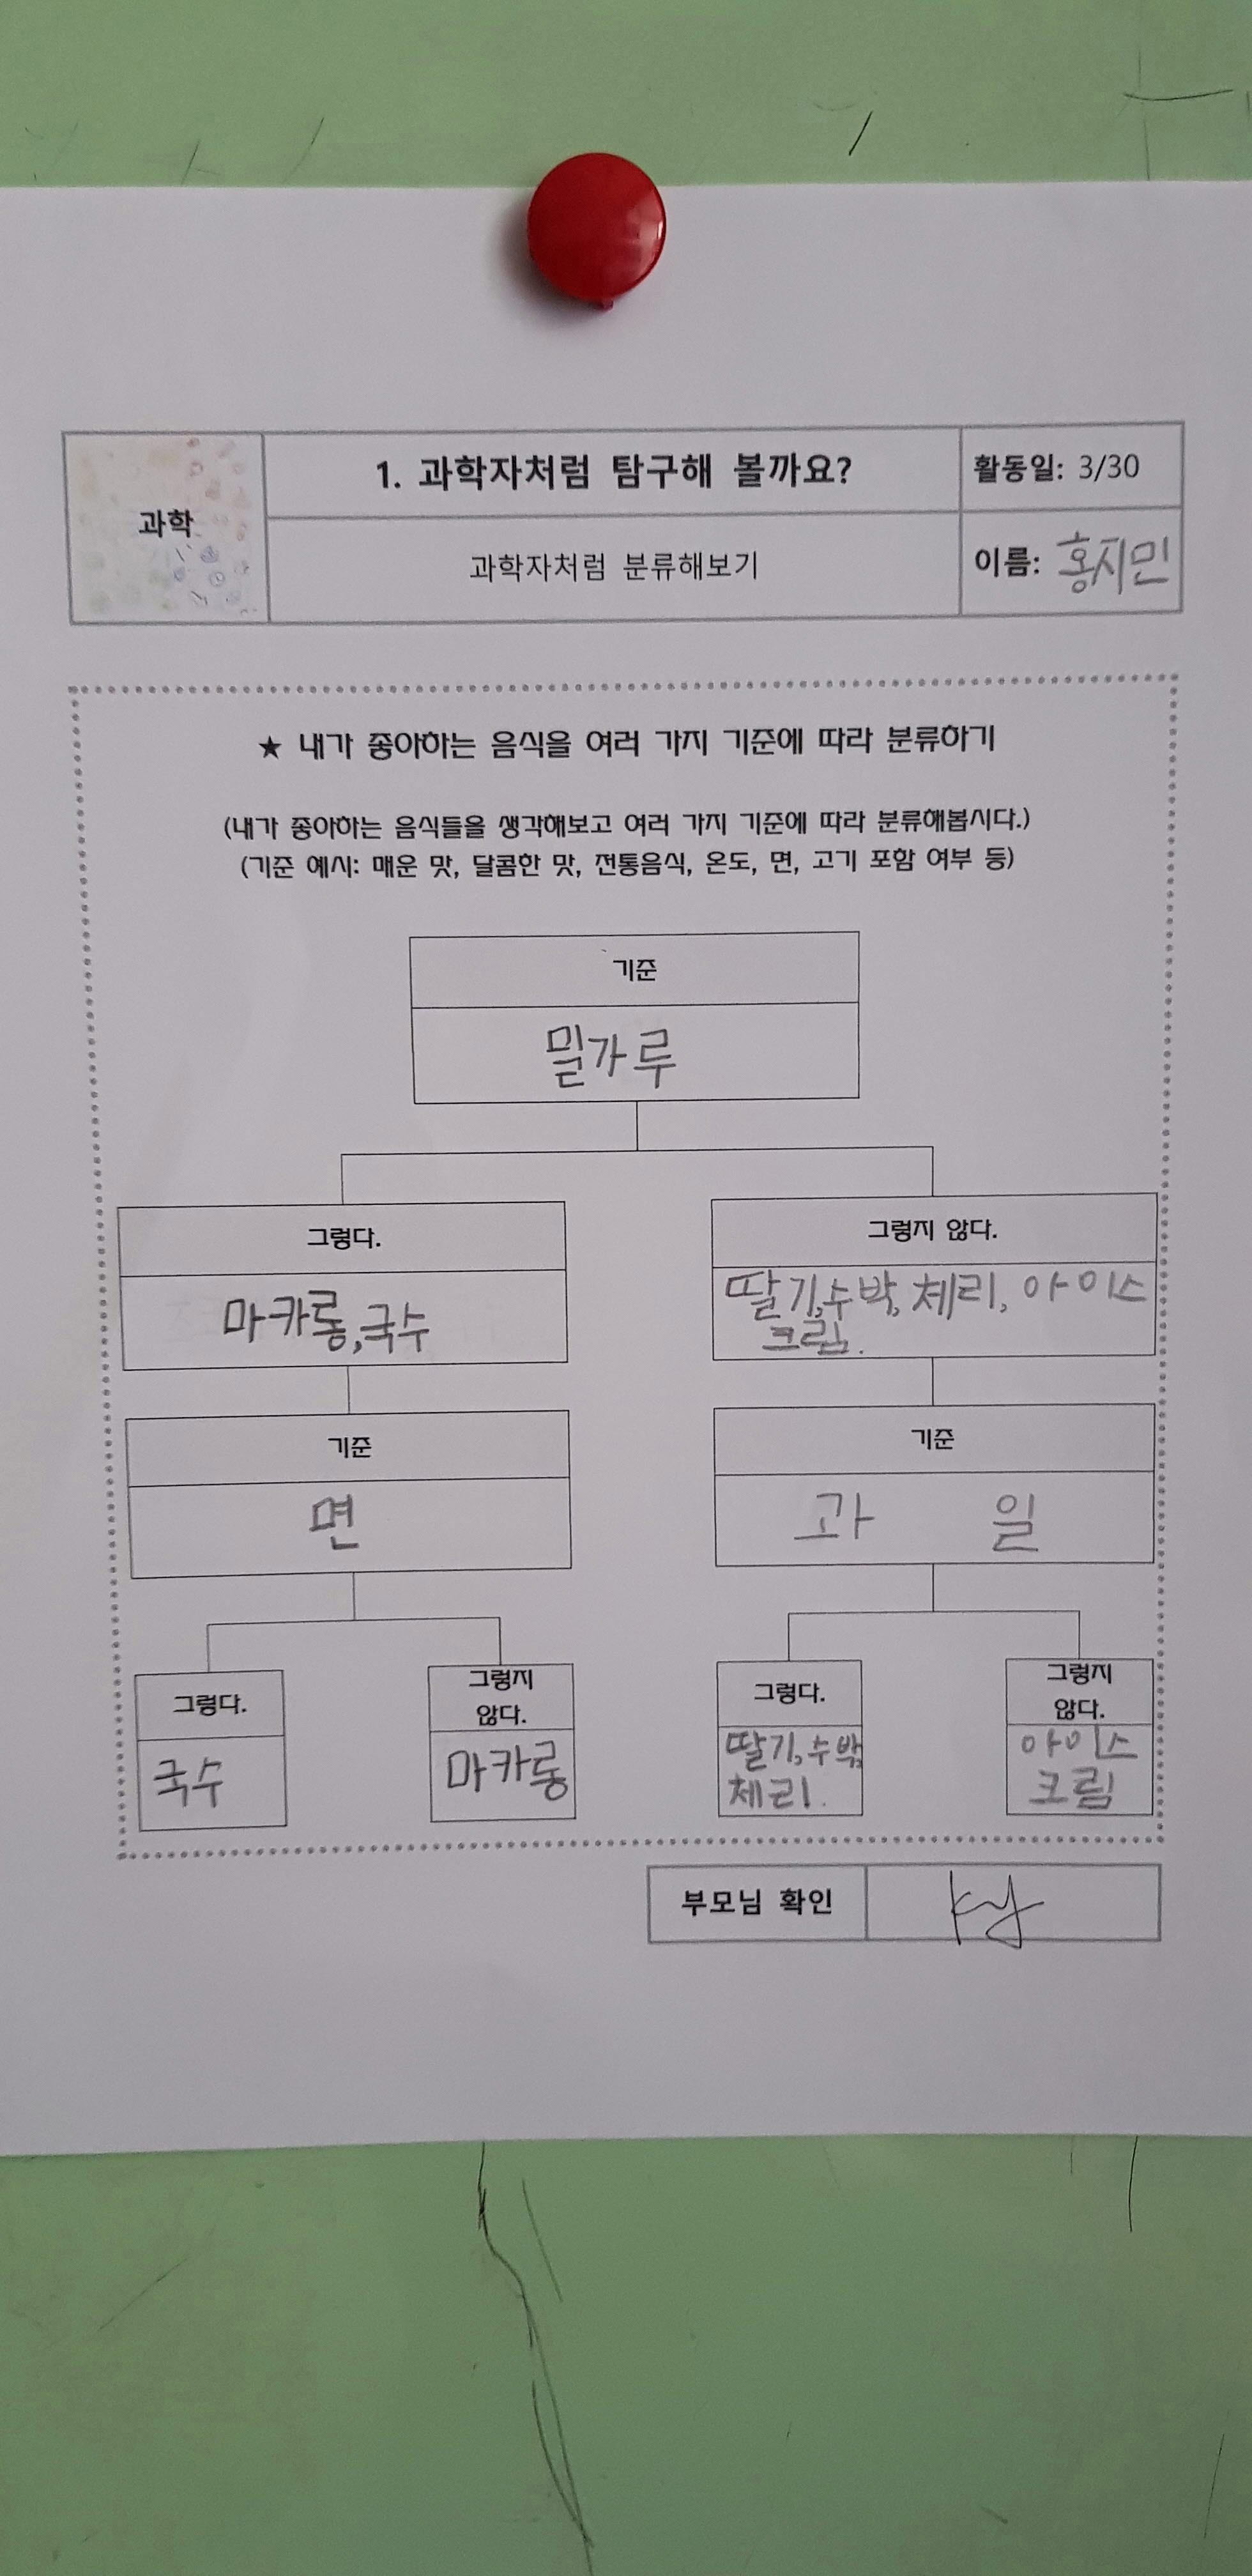 과학
1. 과학자처럼 탐구해 볼까요?
활동일: 3/30
과학자처럼 분류해보기
이름: 홍지민
★ 내가 좋아하는 음식을 여러 가지 기준에 따라 분류하기
(내가 좋아하는 음식들을 생각해보고 여러 가지 기준에 따라 분류해봅시다.)
(기준 예시: 매운 맛, 달콤한 맛, 전통음식, 온도, 면, 고기 포함 여부 등)
기준
밀가루
그렇다.
마카롱,국수
그렇지 않다.
딸기,수박,체리,아이스
크림.
기준
면
기준
과 일
그렇다.
국수
그렇지
않다.
마카롱
그렇다.
딸기,수박,
체리.
그렇지
않다.
아이스
크림
부모님 확인